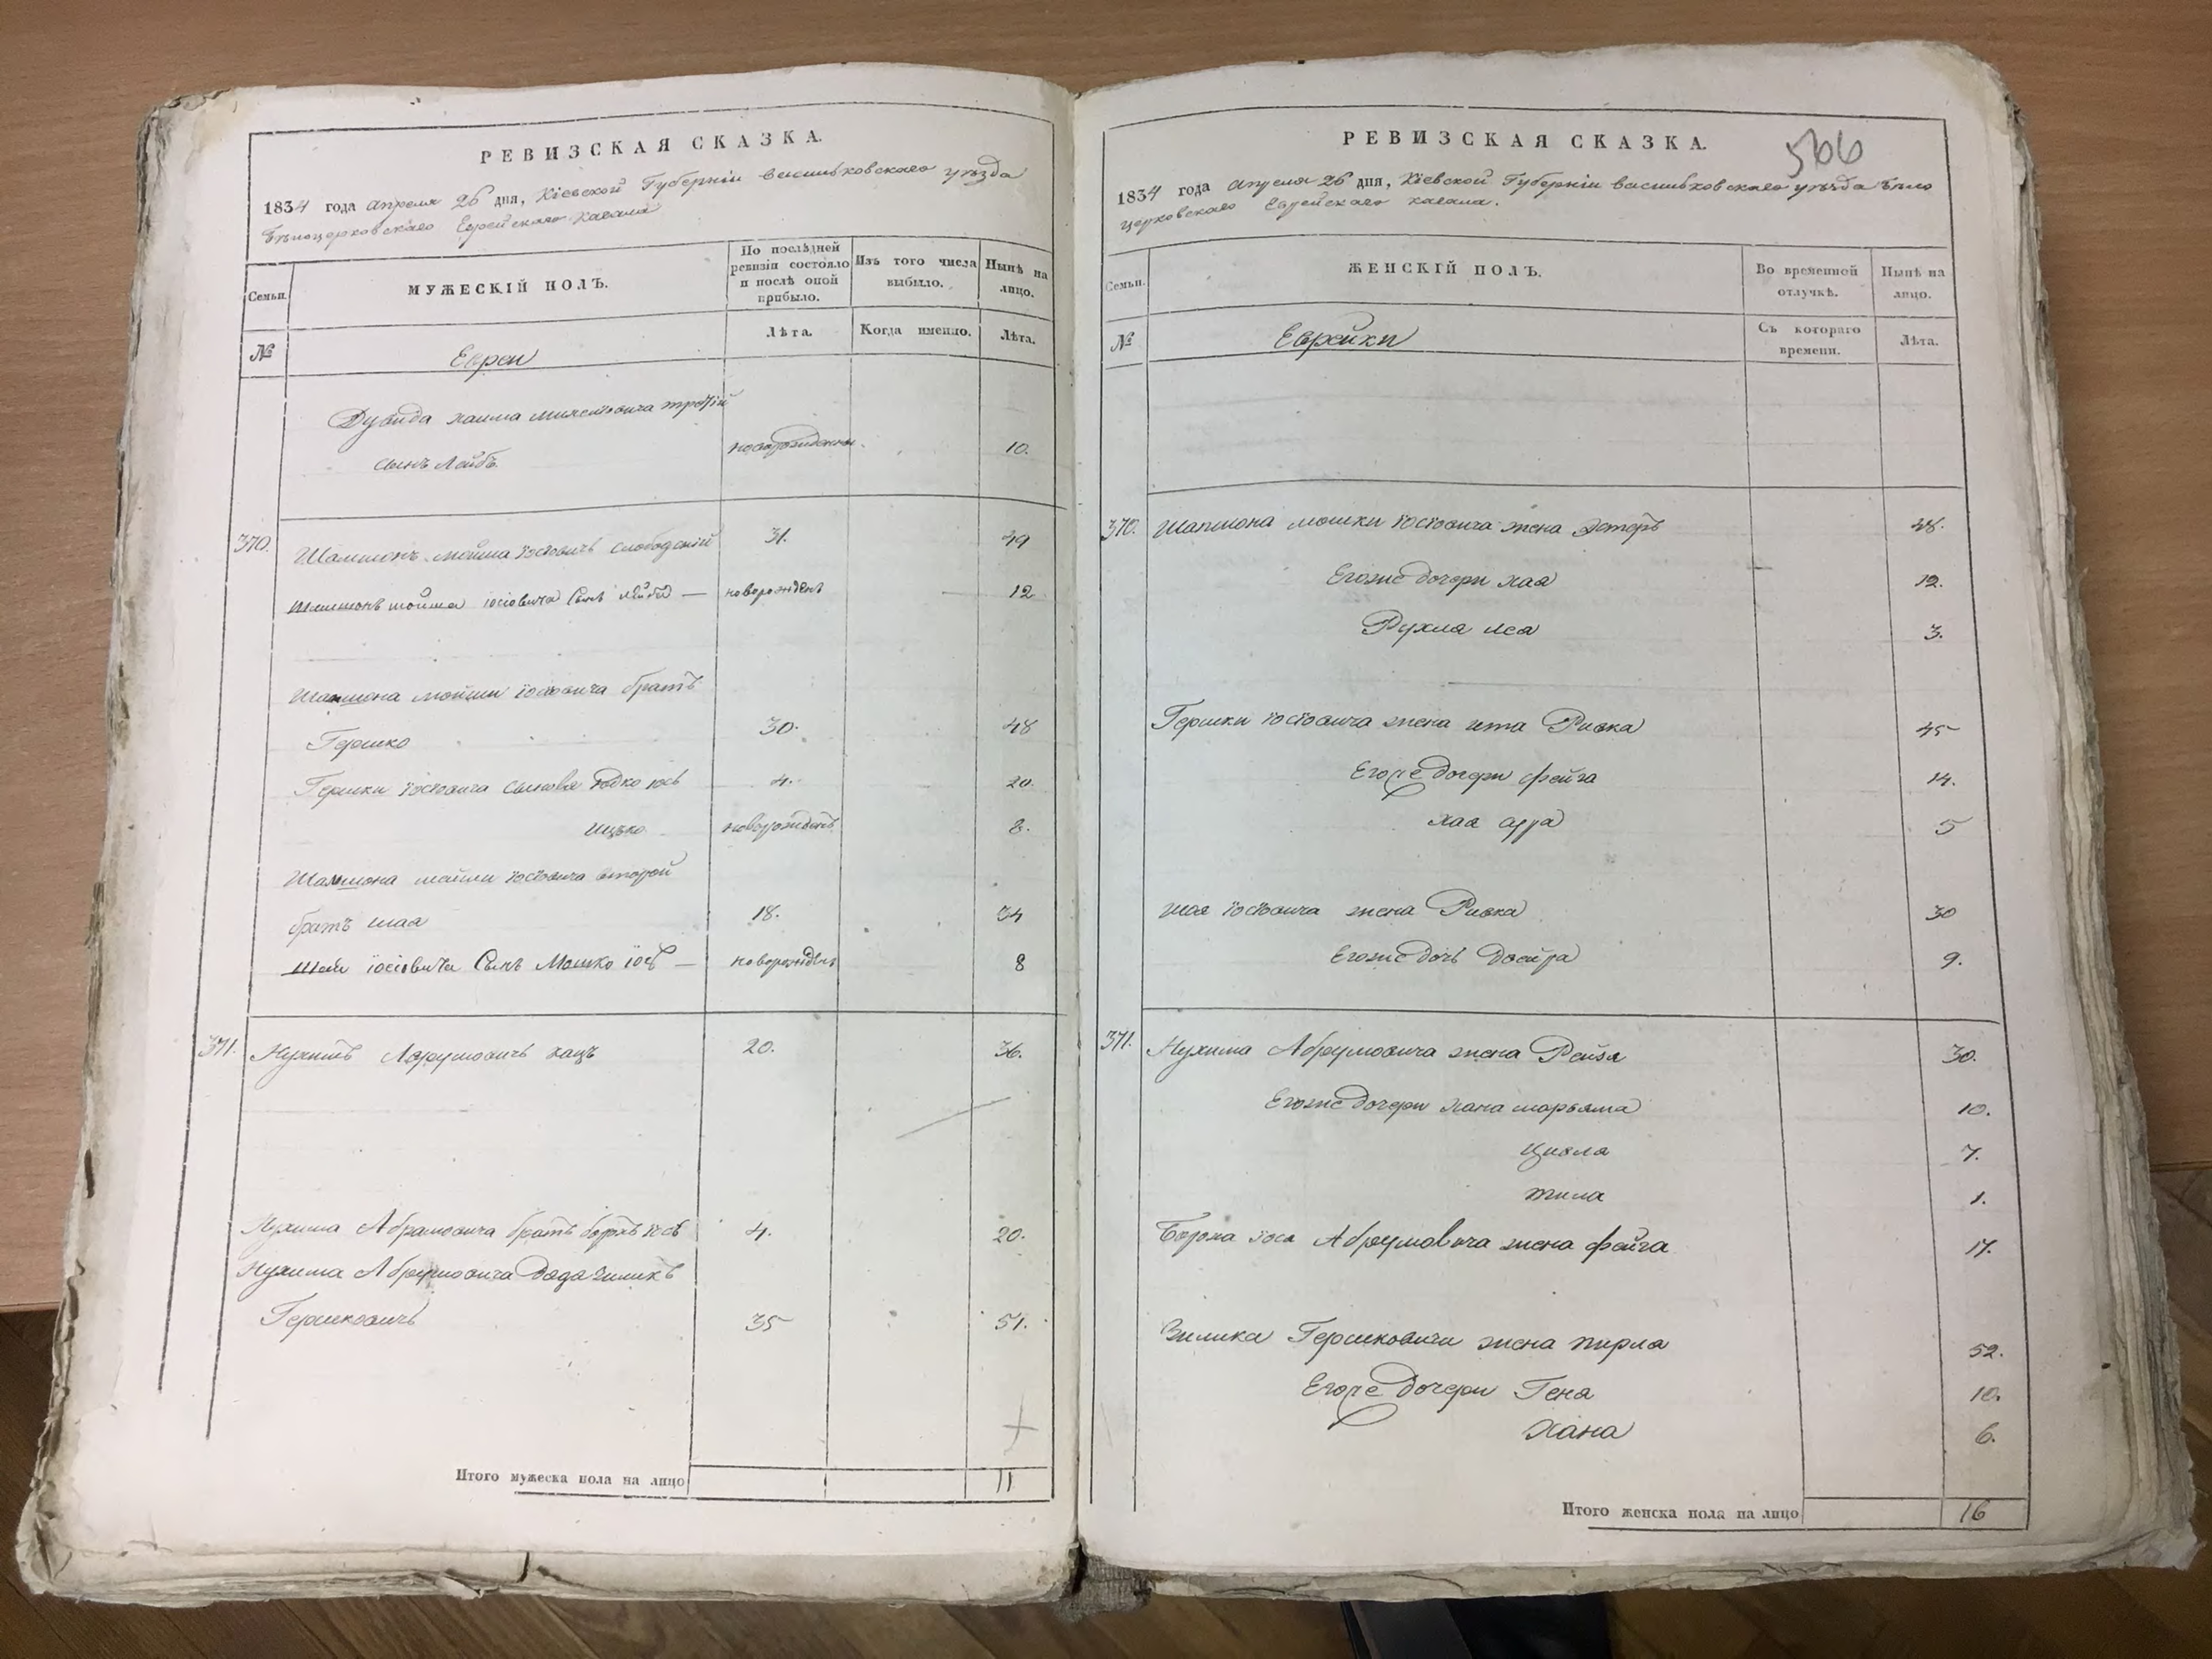 РЕВИЗСКАЯ СКАЗКА.
1834 года Апреля 26 дня, Кіевской Губерніи васильковскаго уѣзда
Бѣлоцерковскаго Еврейскаго Кагала
Семьи.
МУЖЕСКІЙ ПОЛЪ.
По послѣдней ревизіи состояло и послѣ оной прибыло.
Изъ того числа выбыло.
Нынѣ на лицо.
№
Евреи
Лѣта.
Когда именно.
Лѣта.
Дувида хаима третій
сынъ Лейбъ. новорожденны. 10.
370. Шамшонъ мойша іосіовичъ слободскій 31. 49
Шамшонъ мойша іосіовича Сынъ — новорожденъ 12
Шамшона мойши іосіовича братъ
Гершко 30. 48
Гершки іосіовича сыновья юдко іось 4. 20.
Ицько новорожденъ 2.
Шамшона мойши іосіовича второй
братъ шая 18. 34
Шаи іосіовича Сынъ Мошко іось — новорожденъ 8
371. Нухимъ Абрумовичъ кацъ 20. 36.
Нухима Абрамовича братъ борохъ іось 4. 20.
Нухима Абрумовича дядя Зиликъ
Гершковичъ 35 51.
Итого мужеска пола на лицо 11
РЕВИЗСКАЯ СКАЗКА.
566
1834 года Апреля 26 дня, Кіевской Губерніи васильковскаго уѣзда Бѣло
церковскаго Еврейскаго кагала.
Семьи.
ЖЕНСКІЙ ПОЛЪ.
Во временной отлучкѣ.
Нынѣ на лицо.
№
Еврейки
Съ котораго времени.
Лѣта.
370. Шапшона мошки іосіовича жена Эстеръ 48.
Егоже дочери хая 12.
Рухля лея 3.
Гершки іосіовича жена ита Ривка 45
Егоже дочери фейга 14.
хая сура 5
шая іосіовича жена Ривка 30
Егоже дочь Двейра 9.
371. Нухима Абрумовича жена Рейзя 30.
Егоже дочери хана марьяма 10.
Цивля 7.
тила 1.
Бороха іося Абрумовича жена фейга 17.
Зилика Гершковича жена пирля 52.
Егоже дочери Гена 10.
Хана 6.
Итого женска пола на лицо 16